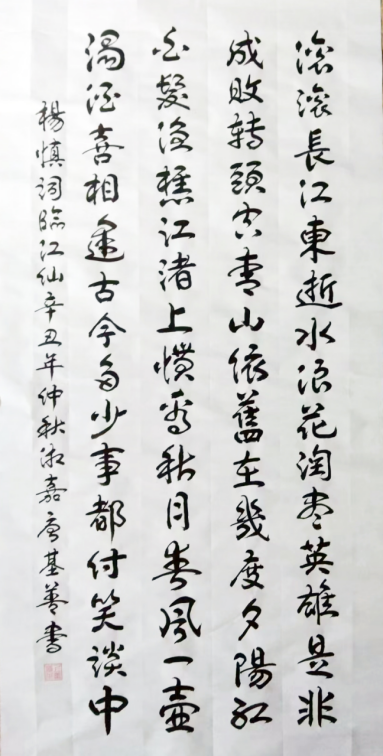 滚滚長江東逝水浪花淘尽英雄是非
成敗转頭空青山依舊在幾度夕陽红
白髮渔樵江渚上慣看秋月春风一壶
濁酒喜相逢古今多少事都付笑談中
楊慎词臨江仙辛丑年仲秋湘嘉唐基善书